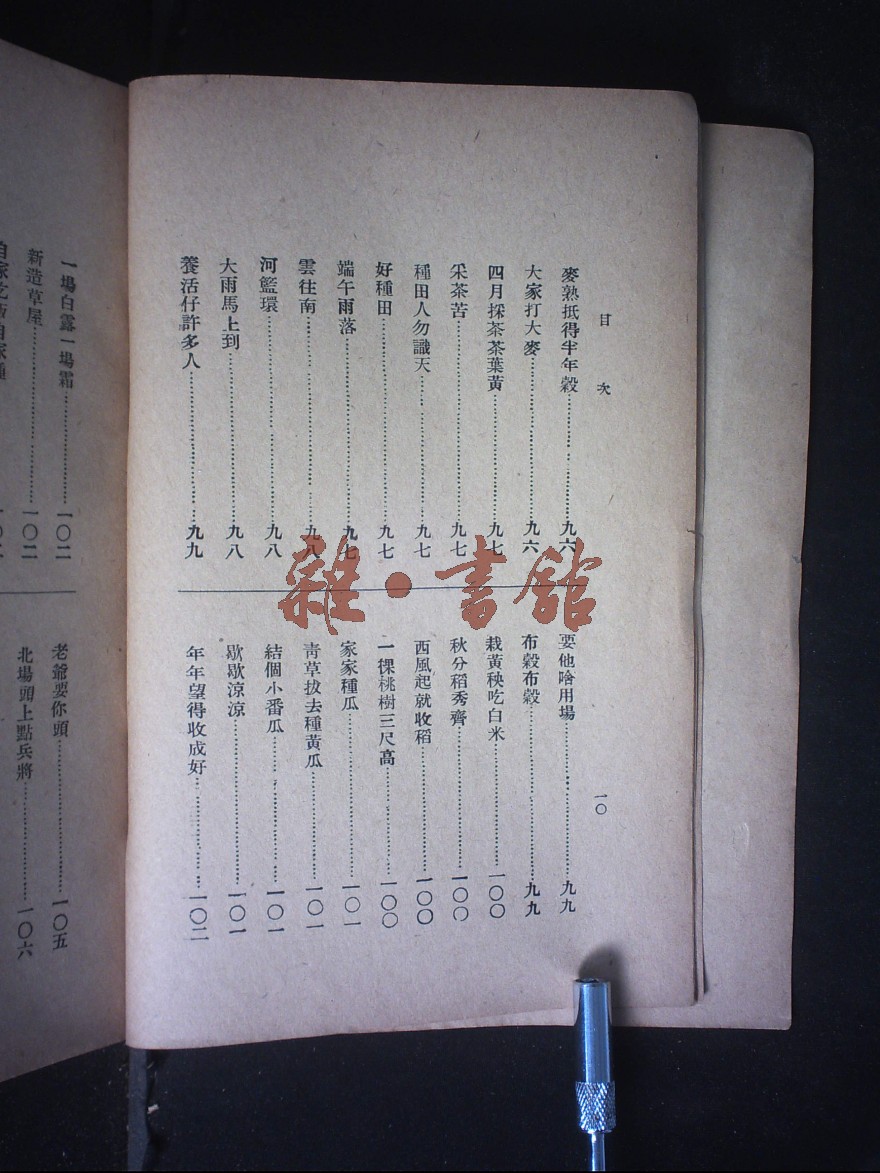 目次
一〇
麥熟抵得半年穀……九六
大家打大麥……九六
四月採茶茶葉黃……九七
采茶苦……九七
種田人勿識天……九七
好種田……九七
端午雨落……九七
雲往南……九八
河籃環……九八
大雨馬上到……九八
養活仔許多人……九九
要他啥用場……九九
布穀布穀……九九
栽黃秧吃白米……一〇〇
秋分稻秀齊……一〇〇
西風起就收稻……一〇〇
一棵桃樹三尺高……一〇〇
家家種瓜……一〇一
靑草拔去種黃瓜……一〇一
結個小番瓜……一〇一
歇歇涼涼……一〇一
年年望得收成好……一〇二
一場白露一場霜……一〇二
新造草屋……一〇二
老爺要你頭……一〇五
北場頭上點兵將……一〇六
雜·書館